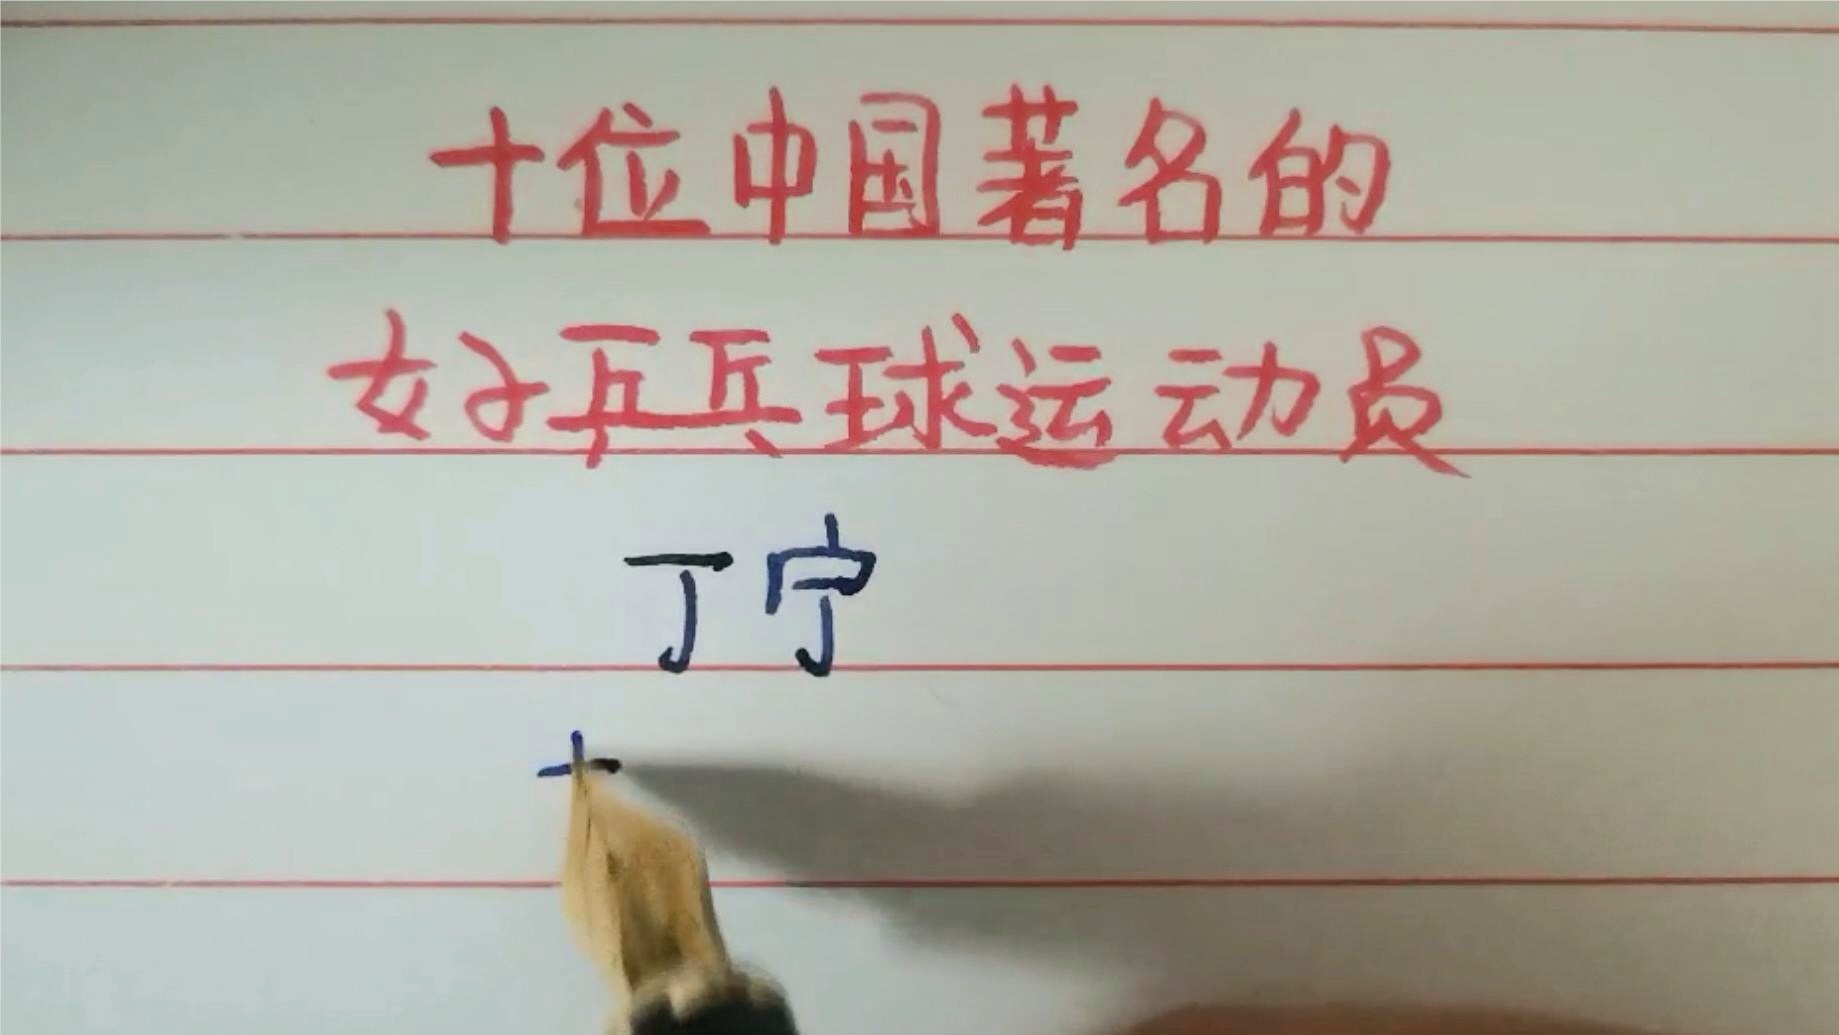 十位中国著名的
女子乒乓球运动员
丁宁